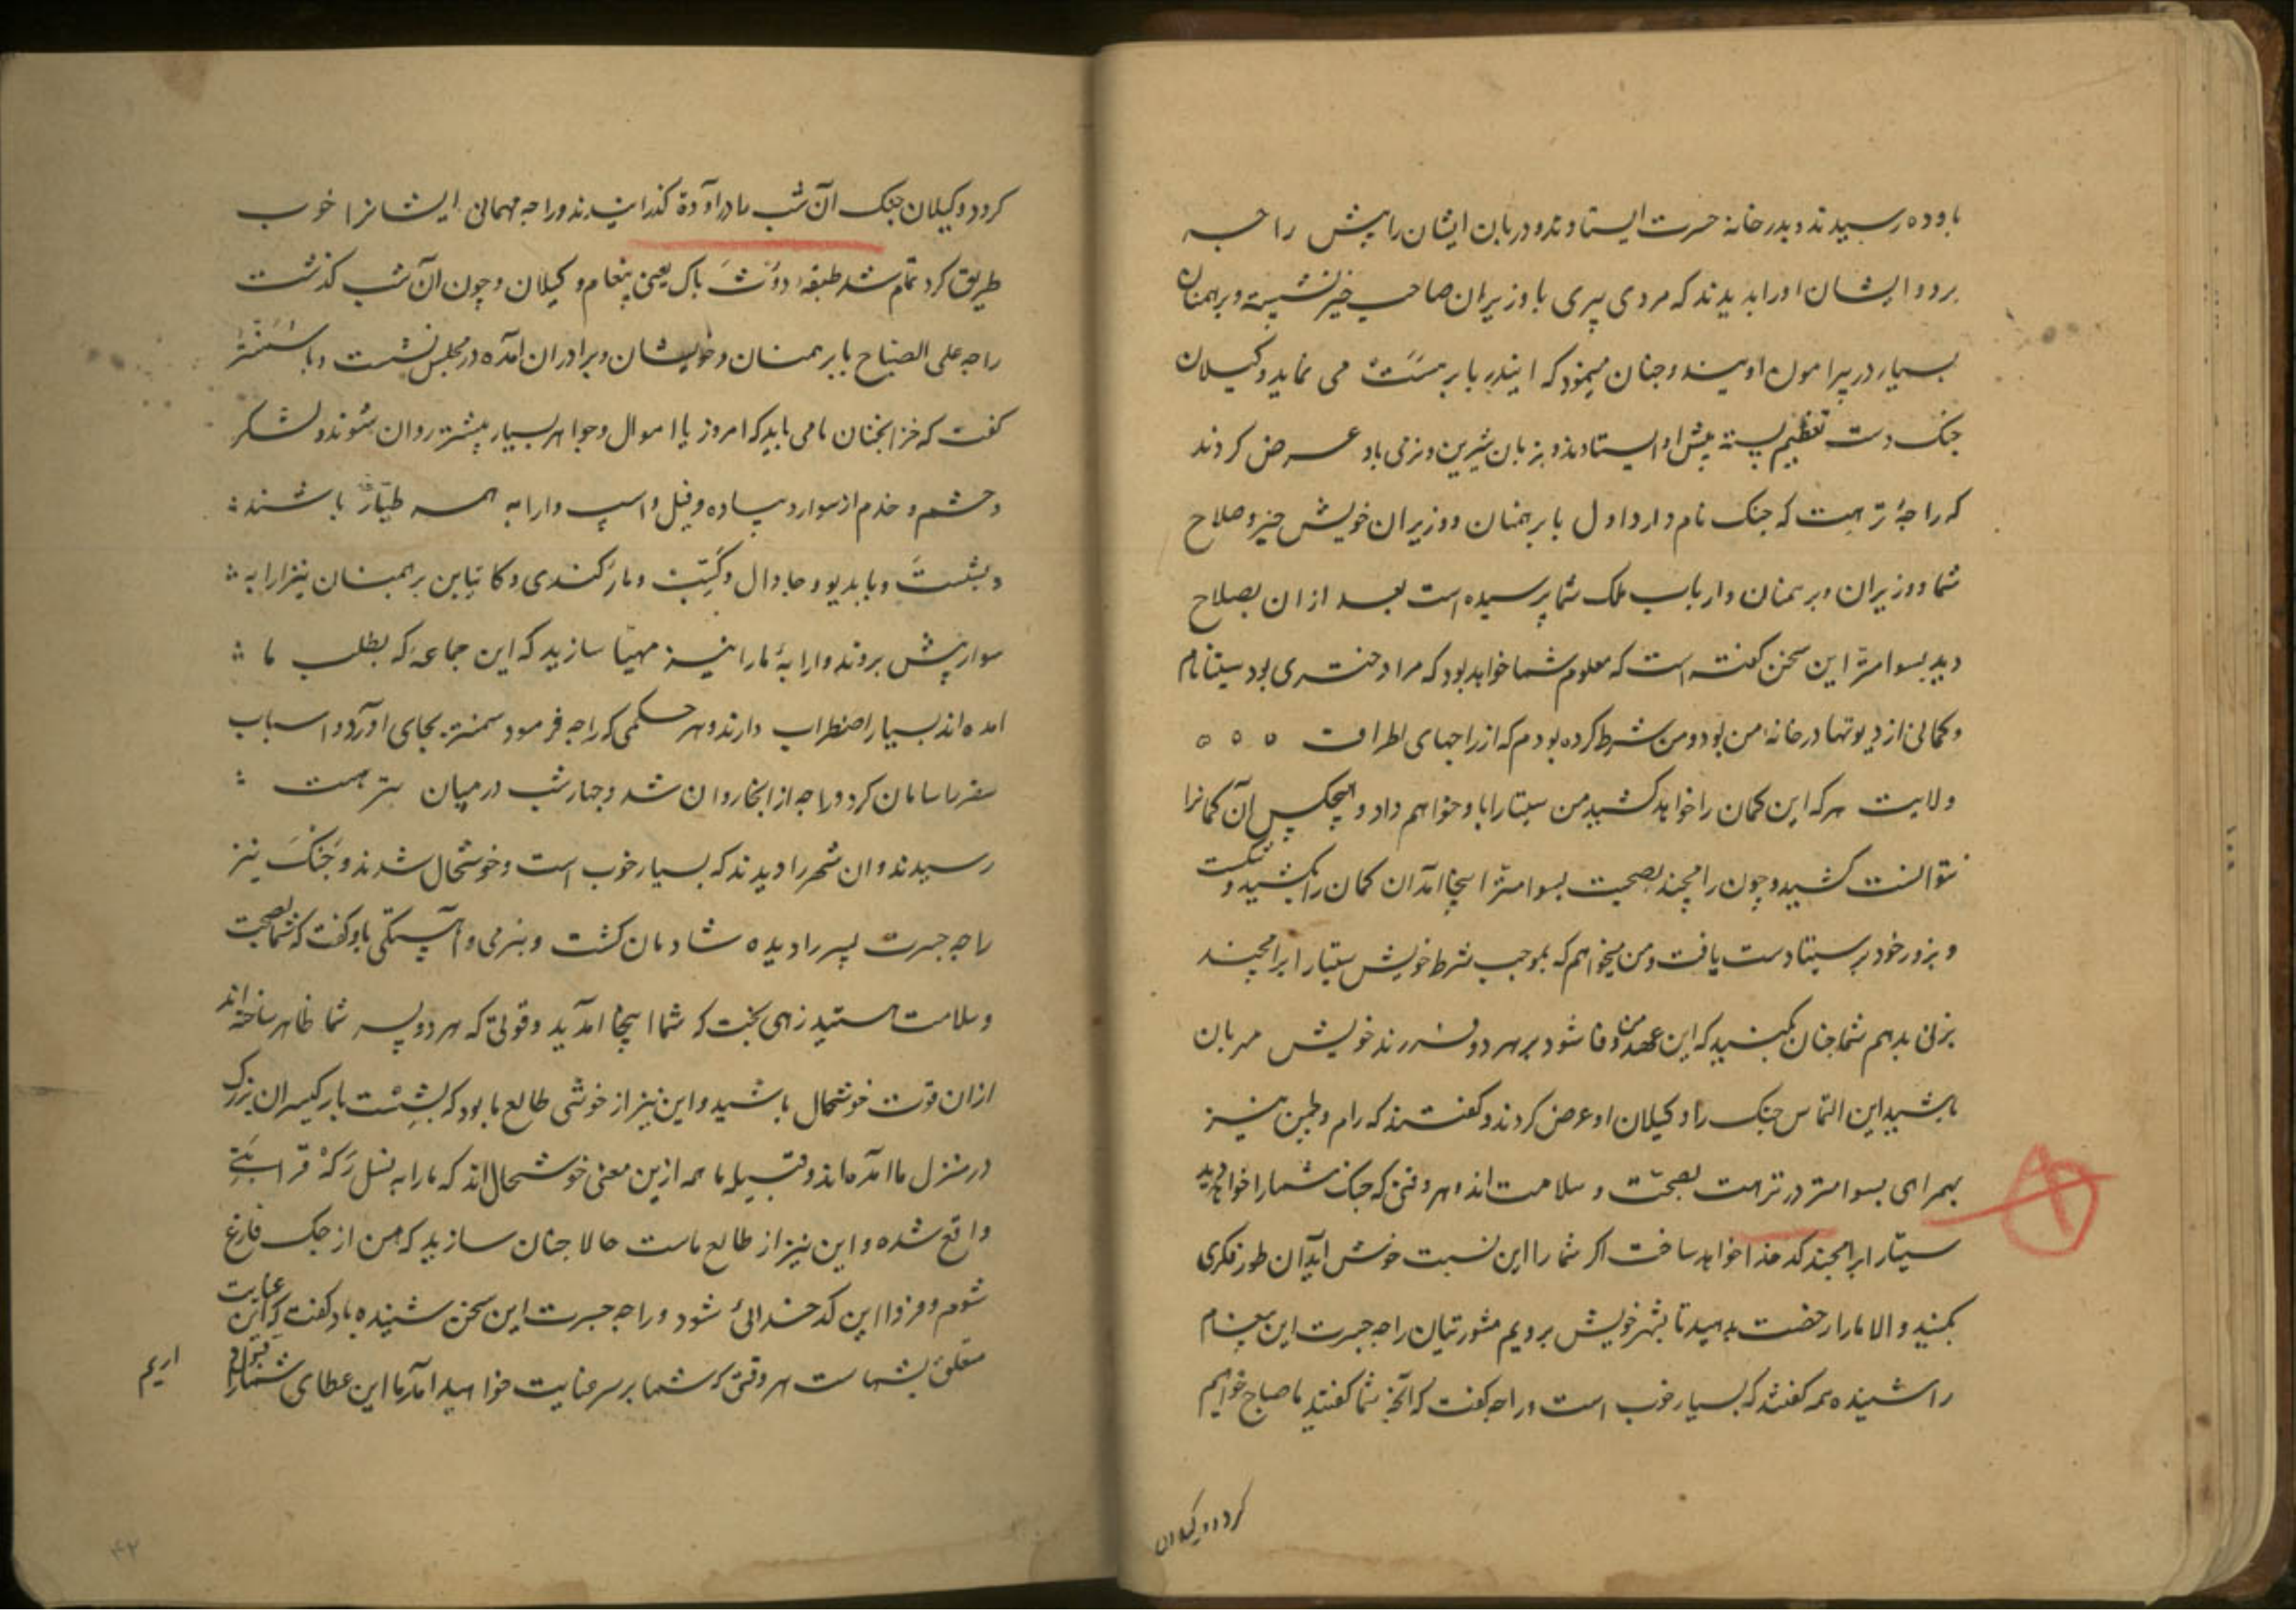 باوده رسیدند و بدر خانه جسرت ایستادند و دربان ایشان را پیش راجه
برد و ایشان او را بدیدند که مردی پیری با وزیران صاحب خیر نشسته و برهمنان
بسیار در پیرامون او یند و چنان مینمود که ایندر با برهسپت می نماید وکیلان
جنک دست تعظیم بسته پیش او ایستادند و بزبان شیرین و نرمی باو عرض کردند
که راجهٔ ترهت که جنک نام دارد اول با برهمنان و وزیران خویش خیر و صلاح
شما و وزیران و برهمنان و ارباب ملک شما پرسیده است بعد ازان بصلاح
دید بسوامتر این سخن کفته است که معلوم شما خواهد بود که مرا دختری بود سیتا نام
و کمانی از دیوتها در خانه من بود و من شرط کرده بودم که از راجهای اطراف ه ه ه
ولایت هرکه این کمان را خواهد کشید من سیتا را باو خواهم داد و هیچکس آن کمانرا
نتوانست کشید و چون رامچند بصحبت بسوامتر اینجا آمد آن کمان را بکشید و شکست
و بزور خود بر سیتا دست یافت و من میخواهم که بموجب شرط خویش سیتا را برامچند
بزنی بدهم شما چنان بکنید که این عهد من وفا شود بر هر دو فرزند خویش مهربان
باشید این التماس جنک را وکیلان او عرض کردند و کفتند که رام و لچمن نیز
بهمراهی بسوامتر در ترهت بصحت و سلامت اند و هر وقتی که جنک شما را خواهد دید
سیتا را برامچند کدخدا خواهد ساخت اکر شما را این نسبت خوش آید آن طور فکری
بکنید و الا ما را رخصت بدهید تا بشهر خویش برویم مشورتیان راجه جسرت این پیغام
را شنیده همه کفتند که بسیار خوب است و راجه کفت که آنچه شما کفتید ما صباح خواهیم
کرد و وکیلان
کرد و وکیلان جنک آن شب ما در اوده کذرانیدند و راجه مهمانی ایشانرا خوب
طریق کرد تمام شد طبقه دوت باک یعنی پیغام وکیلان و چون آن شب کذشت
راجه علی الصباح با برهمنان و خویشان و برادران آمده در مجلس نشست و با سمنتر
کفت که خزانچیان ما می باید که امروز با اموال و جواهر بسیار پیشتر روان شوند و لشکر
و حشم و خدم از سوار و پیاده و فیل و اسپ و ارابه همه طیار باشند
و بشست و بابدیو و جاوال و کشپ و مارکندی و کاتیاین برهمنان نیز ارابه
سوار پیش بروند و ارابهٔ ما را نیز مهیا سازید که این جماعه که بطلب ما
امده اند بسیار اضطراب دارند و هر حکمی که راجه فرمود سمنتر بجای آورد و اسباب
سفر ما سامان کرد و راجه از انجا روان شد و چهار شب در میان بترهت
رسیدند و ان شهر را دیدند که بسیار خوب است و خوشحال شدند و جنک نیز
راجه جسرت پسر را دیده شادمان کشت و بنرمی و آهستکی باو کفت که شما بصحت
و سلامت هستید زهی بخت که شما اینجا آمدید و قوتی که هر دو پسر شما ظاهر ساخته اند
ازان قوت خوشحال باشید و این نیز از خوشی طالع ما بود که بشست با رکیسران بزرک
در منزل ما آمده اند و قبیله ما همه ازین معنی خوشحال اند که ما را به نسل رکه قرابتی
واقع شده و این نیز از طالع ماست حالا چنان سازید که من از جک فارغ
شوم و فردا این کدخدائی شود و راجه جسرت این سخن شنیده باو کفت که این عنایت
متعلق بشما ست هر وقتی که شما بر سر عنایت خواهید آمد ما این عطای شما را قبول
اریم
۴۲